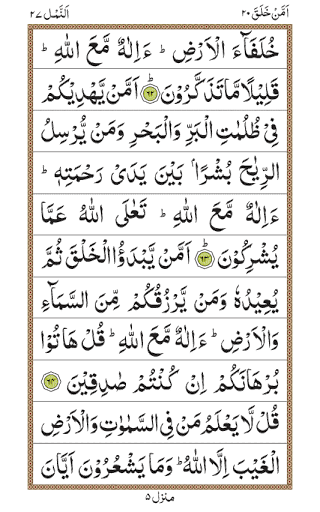 اَمَّنْ خَلَقَ ٢٠
اَلنَّمْل ٢٧
خُلَفَآءَ الْاَرْضِ ؕ ءَاِلٰهٌ مَّعَ اللّٰهِ ؕ
قَلِيْلًا مَّا تَذَكَّرُوْنَ ؕ ﴿٦٢﴾ اَمَّنْ يَّهْدِيْكُمْ
فِيْ ظُلُمٰتِ الْبَرِّ وَالْبَحْرِ وَمَنْ يُّرْسِلُ
الرِّيٰحَ بُشْرًاۢ بَيْنَ يَدَيْ رَحْمَتِهٖ ؕ
ءَاِلٰهٌ مَّعَ اللّٰهِ ؕ تَعٰلَى اللّٰهُ عَمَّا
يُشْرِكُوْنَ ؕ ﴿٦٣﴾ اَمَّنْ يَّبْدَؤُا الْخَلْقَ ثُمَّ
يُعِيْدُهٗ وَمَنْ يَّرْزُقُكُمْ مِّنَ السَّمَآءِ
وَالْاَرْضِ ؕ ءَاِلٰهٌ مَّعَ اللّٰهِ ؕ قُلْ هَاتُوْا
بُرْهَانَكُمْ اِنْ كُنْتُمْ صٰدِقِيْنَ ﴿٦٤﴾
قُلْ لَّا يَعْلَمُ مَنْ فِي السَّمٰوٰتِ وَالْاَرْضِ
الْغَيْبَ اِلَّا اللّٰهُ ؕ وَمَا يَشْعُرُوْنَ اَيَّانَ
منزل ٥